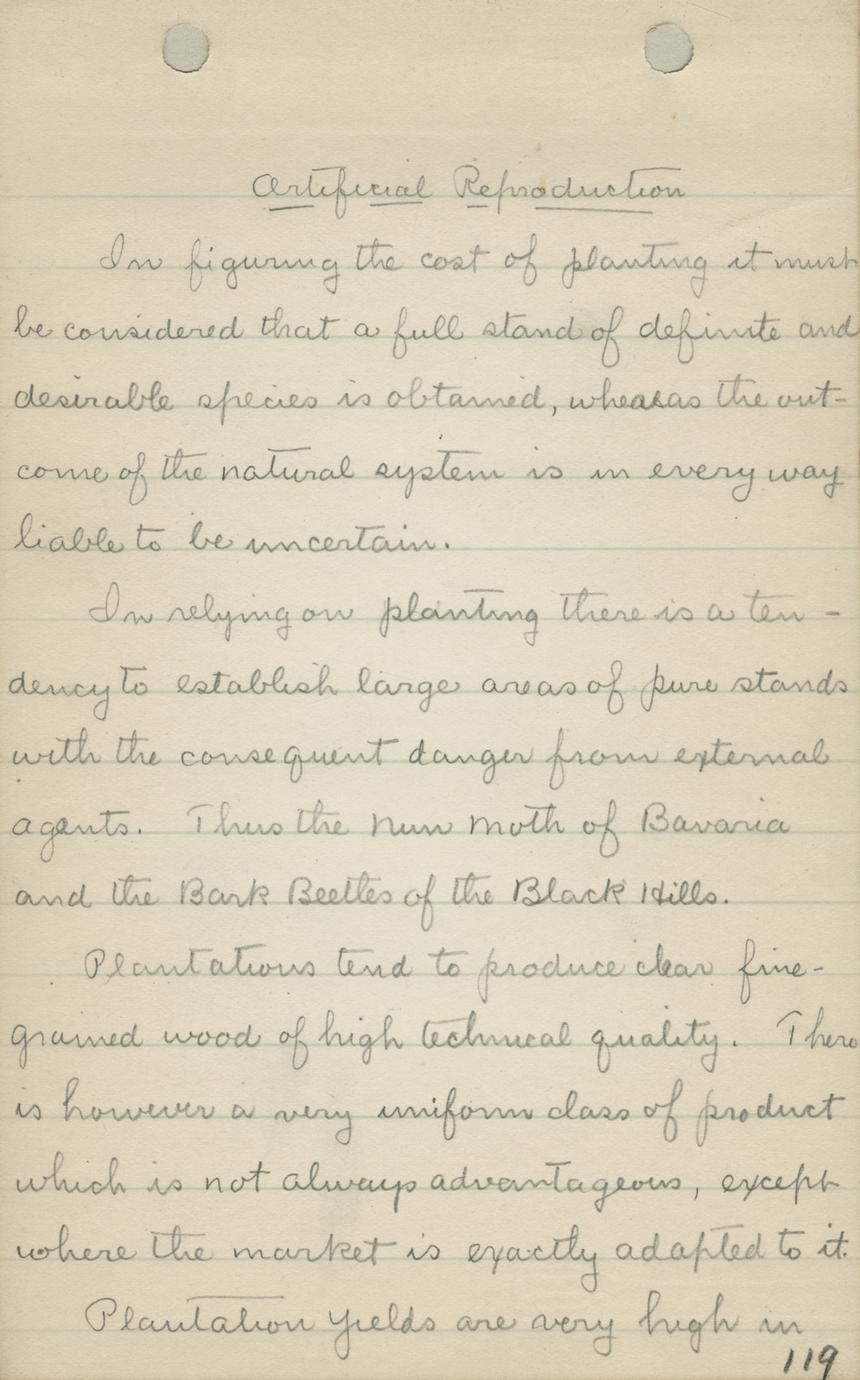 Artificial Reproduction
In figuring the cost of planting it must
be considered that a full stand of definite and
desirable species is obtained, wheaeas the out-
come of the natural system is in every way
liable to be uncertain.
In relying on planting there is a ten-
dency to establish large areas of pure stands
with the consequent danger from external
agents. Thus the Nun Moth of Bavaria
and the Bark Beetles of the Black Hills.
Plantations tend to produce clear fine-
grained wood of high technical quality. There
is however a very uniform class of product
which is not always advantageous, except
where the market is exactly adapted to it.
Plantation yields are very high in
119